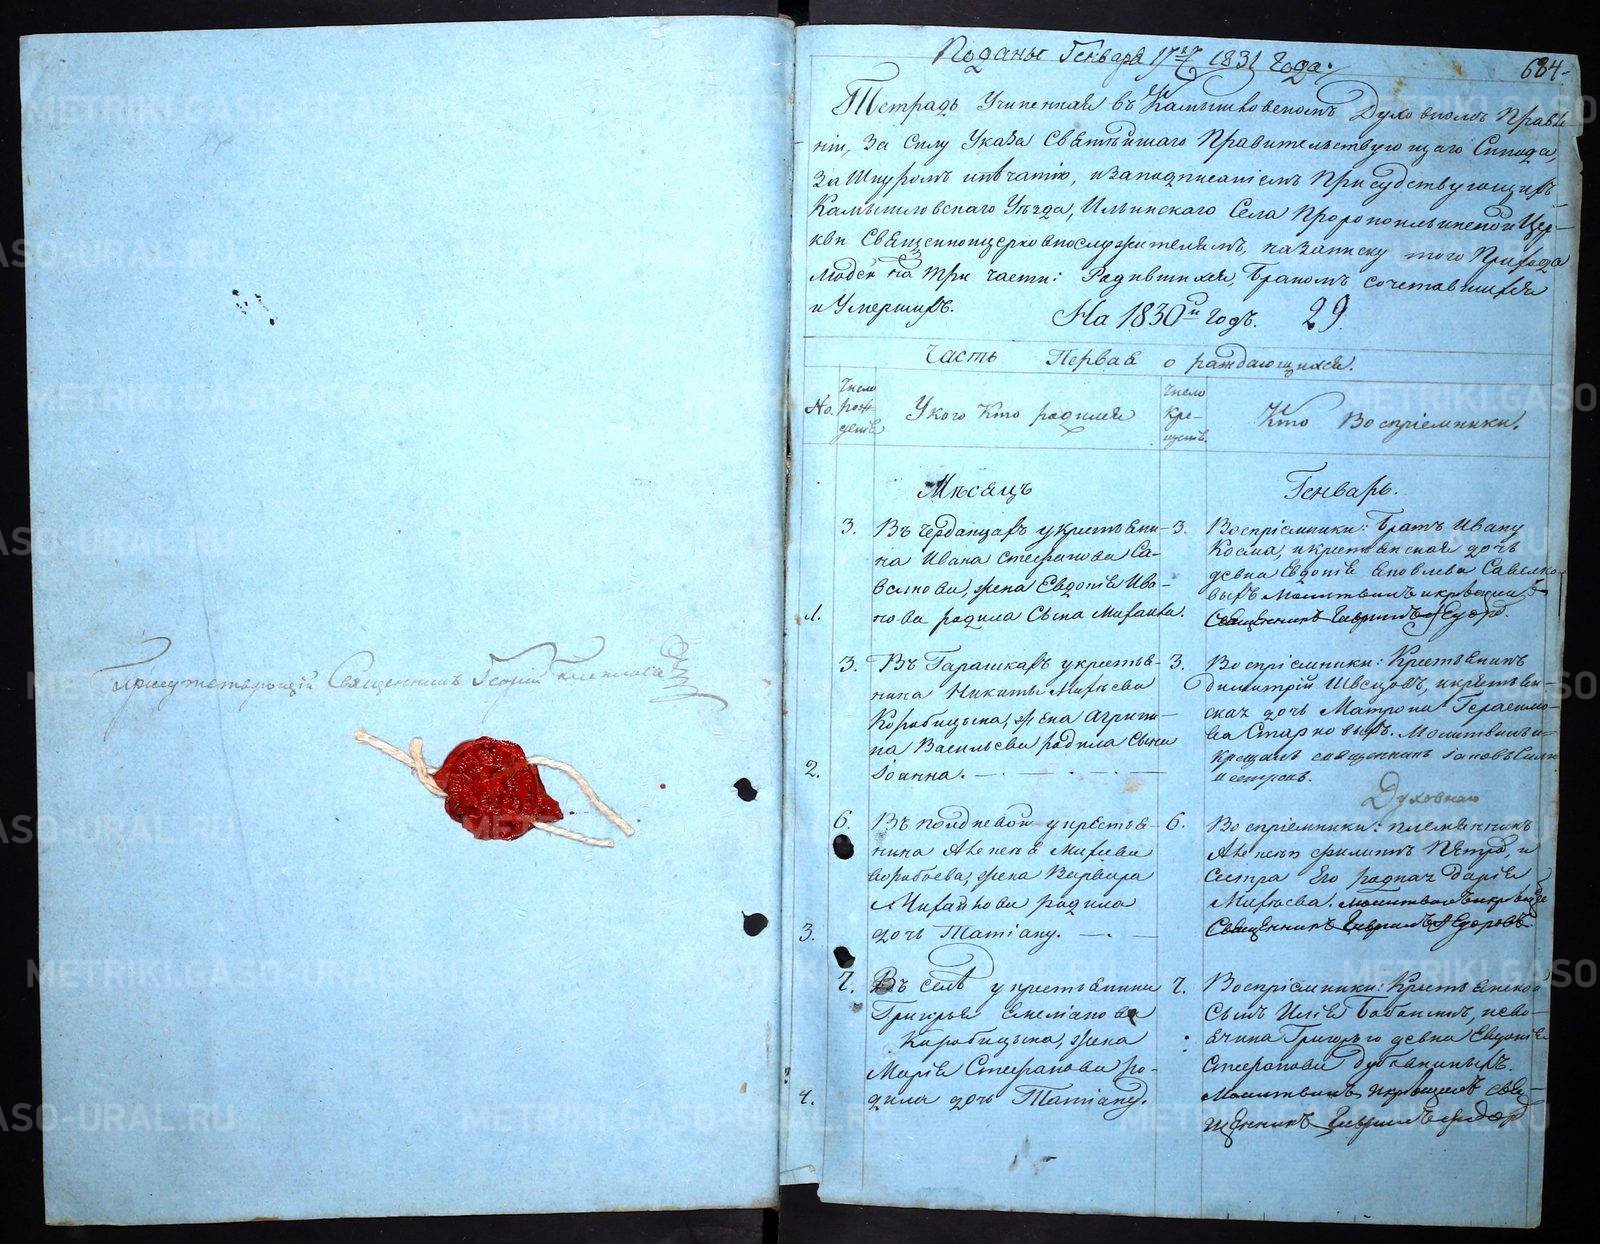 Присутствующій Священникъ Георгій
Поданы Генваря 17 1831 Года.
634
Тетрадь Учиненная въ Камышловскомъ Духовномъ Правле
ніи, За силу Указа Святѣйшаго Правительствующаго Синода,
За Шнуромъ ипечатію, изаподписаніемъ Присудствующихъ
Камышловскаго Уѣзда, Ильинскаго Села Пророкоильинской Цер-
кви Священноцерковнослужителямъ, назаписку того Прихода
Людей на три части: Родившихся, Бракомъ сочетавшихся
и Умершихъ.
На 1830й годъ. 29.
Часть Первая о раждающихся.
No. Число рож- денія
У кого Кто родился
Число кре- щенія
Кто Воспріемники.
Мѣсяцъ Генварь.
3. Въ Чердансахъ укрестьяни-
на Ивана Стефанова Са-
жена Евдокія Ива-
1. нова родила Сына Михаила.
3. Воспріемники: Братъ Ивану
Косма, икрестьянская дочь
девка Евдокія Яковлева Савелко-
выхъ Молитвилъ икрестилъ
Священникъ Гавріилъ Ѳедор.
3. Въ Гарашкахъ укрестья-
нина Никиты Михѣева
Коробицына, жена Агрипи-
на Васильева родила Сына
2. Іоанна.
3. Воспріемники: Крестьянинъ
Димитрій Швецовъ, икрестьян-
ская дочь Матрона Герасимо-
ва Старковыхъ. Молитвилъ и
крещалъ священникъ Іаковъ
Духовная
6. Въ полдневой укрестья-
нина Алексѣя Михѣева
Воробьева, жена Варвара
Михайлова родила
3. дочь Татіану.
6. Воспріемники: племянникъ
Алексѣя Филиппъ Петровъ, и
Сестра Его родная Дарія
Михѣева. Молитвилъ икрестилъ
Священникъ Гавріилъ Ѳедоровъ
7. Въ селѣ укрестьянина
Григорья Емеліанова
Коробицына, жена
Марія Стефанова ро-
4. дила дочь Татіану.
7. Воспріемники: Крестьянской
Сынъ Илія Бабкинъ, исво-
ячина Григорьго девка Евдокія
Стефанова
Молитвилъ икрещалъ свя-
щенникъ Гавріилъ Ѳедор